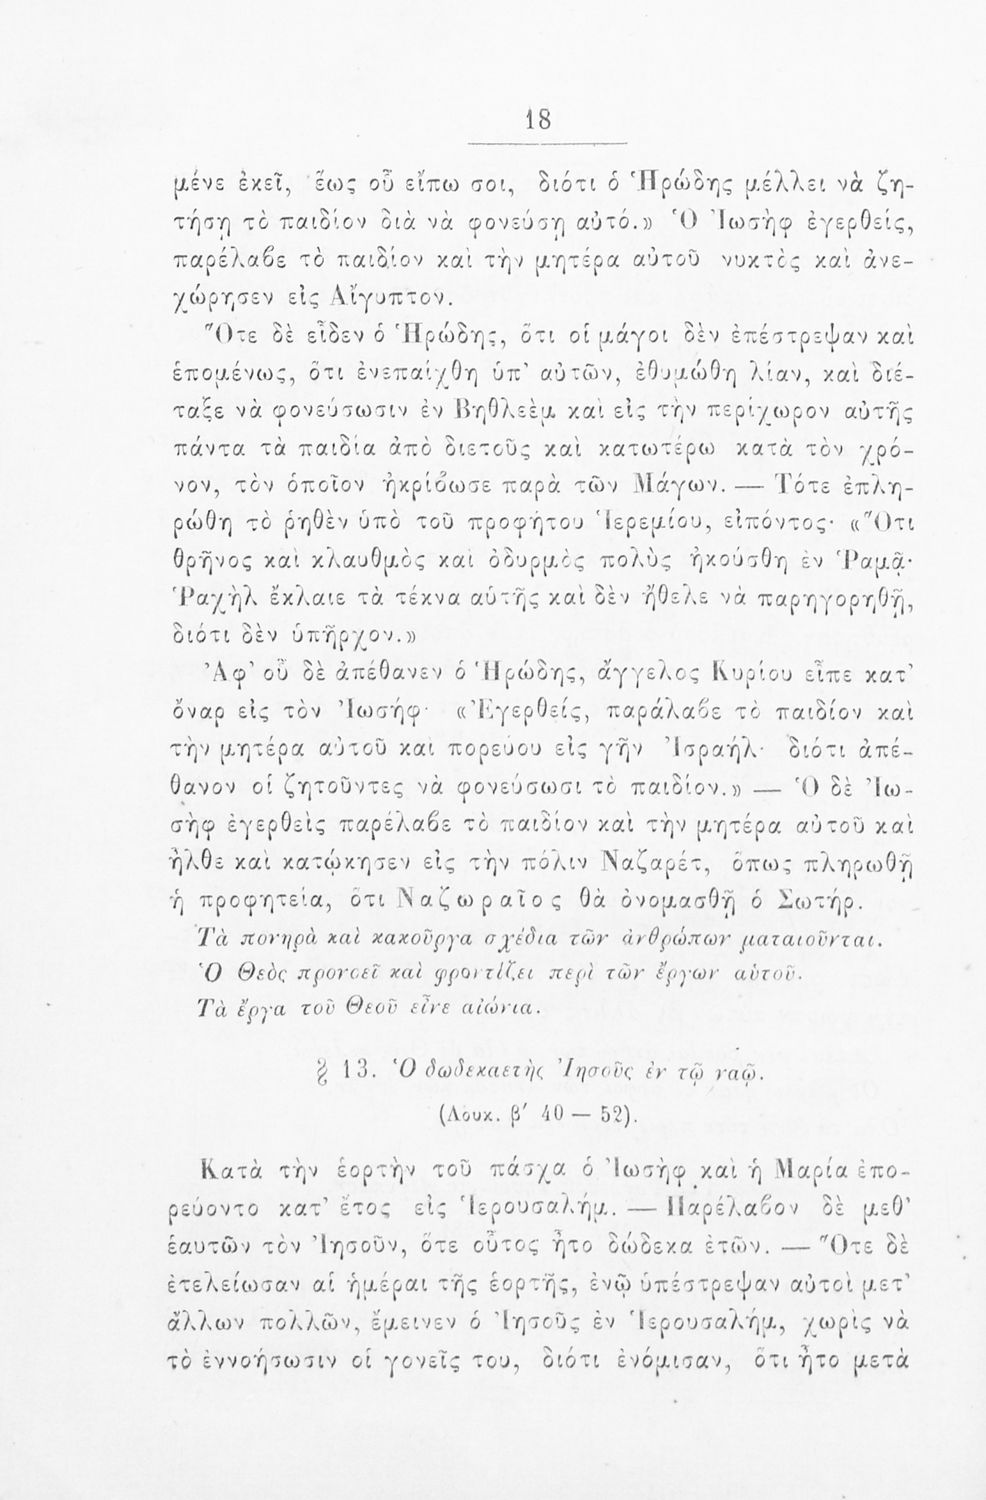 18
μένε ἐκεῖ, ἕως οὗ εἴπω σοι, διότι ὁ Ἡρώδης μέλλει νὰ ζη-
τήσῃ τὸ παιδίον διὰ νὰ φονεύσῃ αὐτό.» Ὁ Ἰωσὴφ ἐγερθείς,
παρέλαβε τὸ παιδίον καὶ τὴν μητέρα αὐτοῦ νυκτὸς καὶ ἀνε-
χώρησεν εἰς Αἴγυπτον.
Ὅτε δὲ εἶδεν ὁ Ἡρώδης, ὅτι οἱ μάγοι δὲν ἐπέστρεψαν καὶ
ἑπομένως, ὅτι ἐνεπαίχθη ὑπ' αὐτῶν, ἐθυμώθη λίαν, καὶ διέ-
ταξε νὰ φονεύσωσιν ἐν Βηθλεὲμ καὶ εἰς τὴν περίχωρον αὐτῆς
πάντα τὰ παιδία ἀπὸ διετοῦς καὶ κατωτέρω κατὰ τὸν χρό-
νον, τὸν ὁποῖον ἠκρίβωσε παρὰ τῶν Μάγων. — Τότε ἐπλη-
ρώθη τὸ ῥηθὲν ὑπὸ τοῦ προφήτου Ἱερεμίου, εἰπόντος· «Ὅτι
θρῆνος καὶ κλαυθμὸς καὶ ὀδυρμὸς πολὺς ἠκούσθη ἐν Ῥαμᾷ·
Ῥαχὴλ ἔκλαιε τὰ τέκνα αὑτῆς καὶ δὲν ἤθελε νὰ παρηγορηθῇ,
διότι δὲν ὑπῆρχον.»
Ἀφ' οὗ δὲ ἀπέθανεν ὁ Ἡρώδης, ἄγγελος Κυρίου εἶπε κατ'
ὄναρ εἰς τὸν Ἰωσήφ· «Ἐγερθείς, παράλαβε τὸ παιδίον καὶ
τὴν μητέρα αὐτοῦ καὶ πορεύου εἰς γῆν Ἰσραήλ· διότι ἀπέ-
θανον οἱ ζητοῦντες νὰ φονεύσωσι τὸ παιδίον.» — Ὁ δὲ Ἰω-
σὴφ ἐγερθεὶς παρέλαβε τὸ παιδίον καὶ τὴν μητέρα αὐτοῦ καὶ
ἦλθε καὶ κατῴκησεν εἰς τὴν πόλιν Ναζαρέτ, ὅπως πληρωθῇ
ἡ προφητεία, ὅτι Ναζωραῖος θὰ ὀνομασθῇ ὁ Σωτήρ.
Τὰ πονηρὰ καὶ κακοῦργα σχέδια τῶν ἀνθρώπων ματαιοῦνται.
Ὁ Θεὸς προνοεῖ καὶ φροντίζει περὶ τῶν ἔργων αὑτοῦ.
Τὰ ἔργα τοῦ Θεοῦ εἶνε αἰώνια.
§ 13. Ὁ δωδεκαετὴς Ἰησοῦς ἐν τῷ ναῷ.
(Λουκ. β' 40 — 52).
Κατὰ τὴν ἑορτὴν τοῦ πάσχα ὁ Ἰωσὴφ καὶ ἡ Μαρία ἐπο-
ρεύοντο κατ' ἔτος εἰς Ἱερουσαλήμ. — Παρέλαβον δὲ μεθ'
ἑαυτῶν τὸν Ἰησοῦν, ὅτε οὗτος ἦτο δώδεκα ἐτῶν. — Ὅτε δὲ
ἐτελείωσαν αἱ ἡμέραι τῆς ἑορτῆς, ἐνῷ ὑπέστρεψαν αὐτοὶ μετ'
ἄλλων πολλῶν, ἔμεινεν ὁ Ἰησοῦς ἐν Ἱερουσαλήμ, χωρὶς νὰ
τὸ ἐννοήσωσιν οἱ γονεῖς του, διότι ἐνόμισαν, ὅτι ἦτο μετὰ